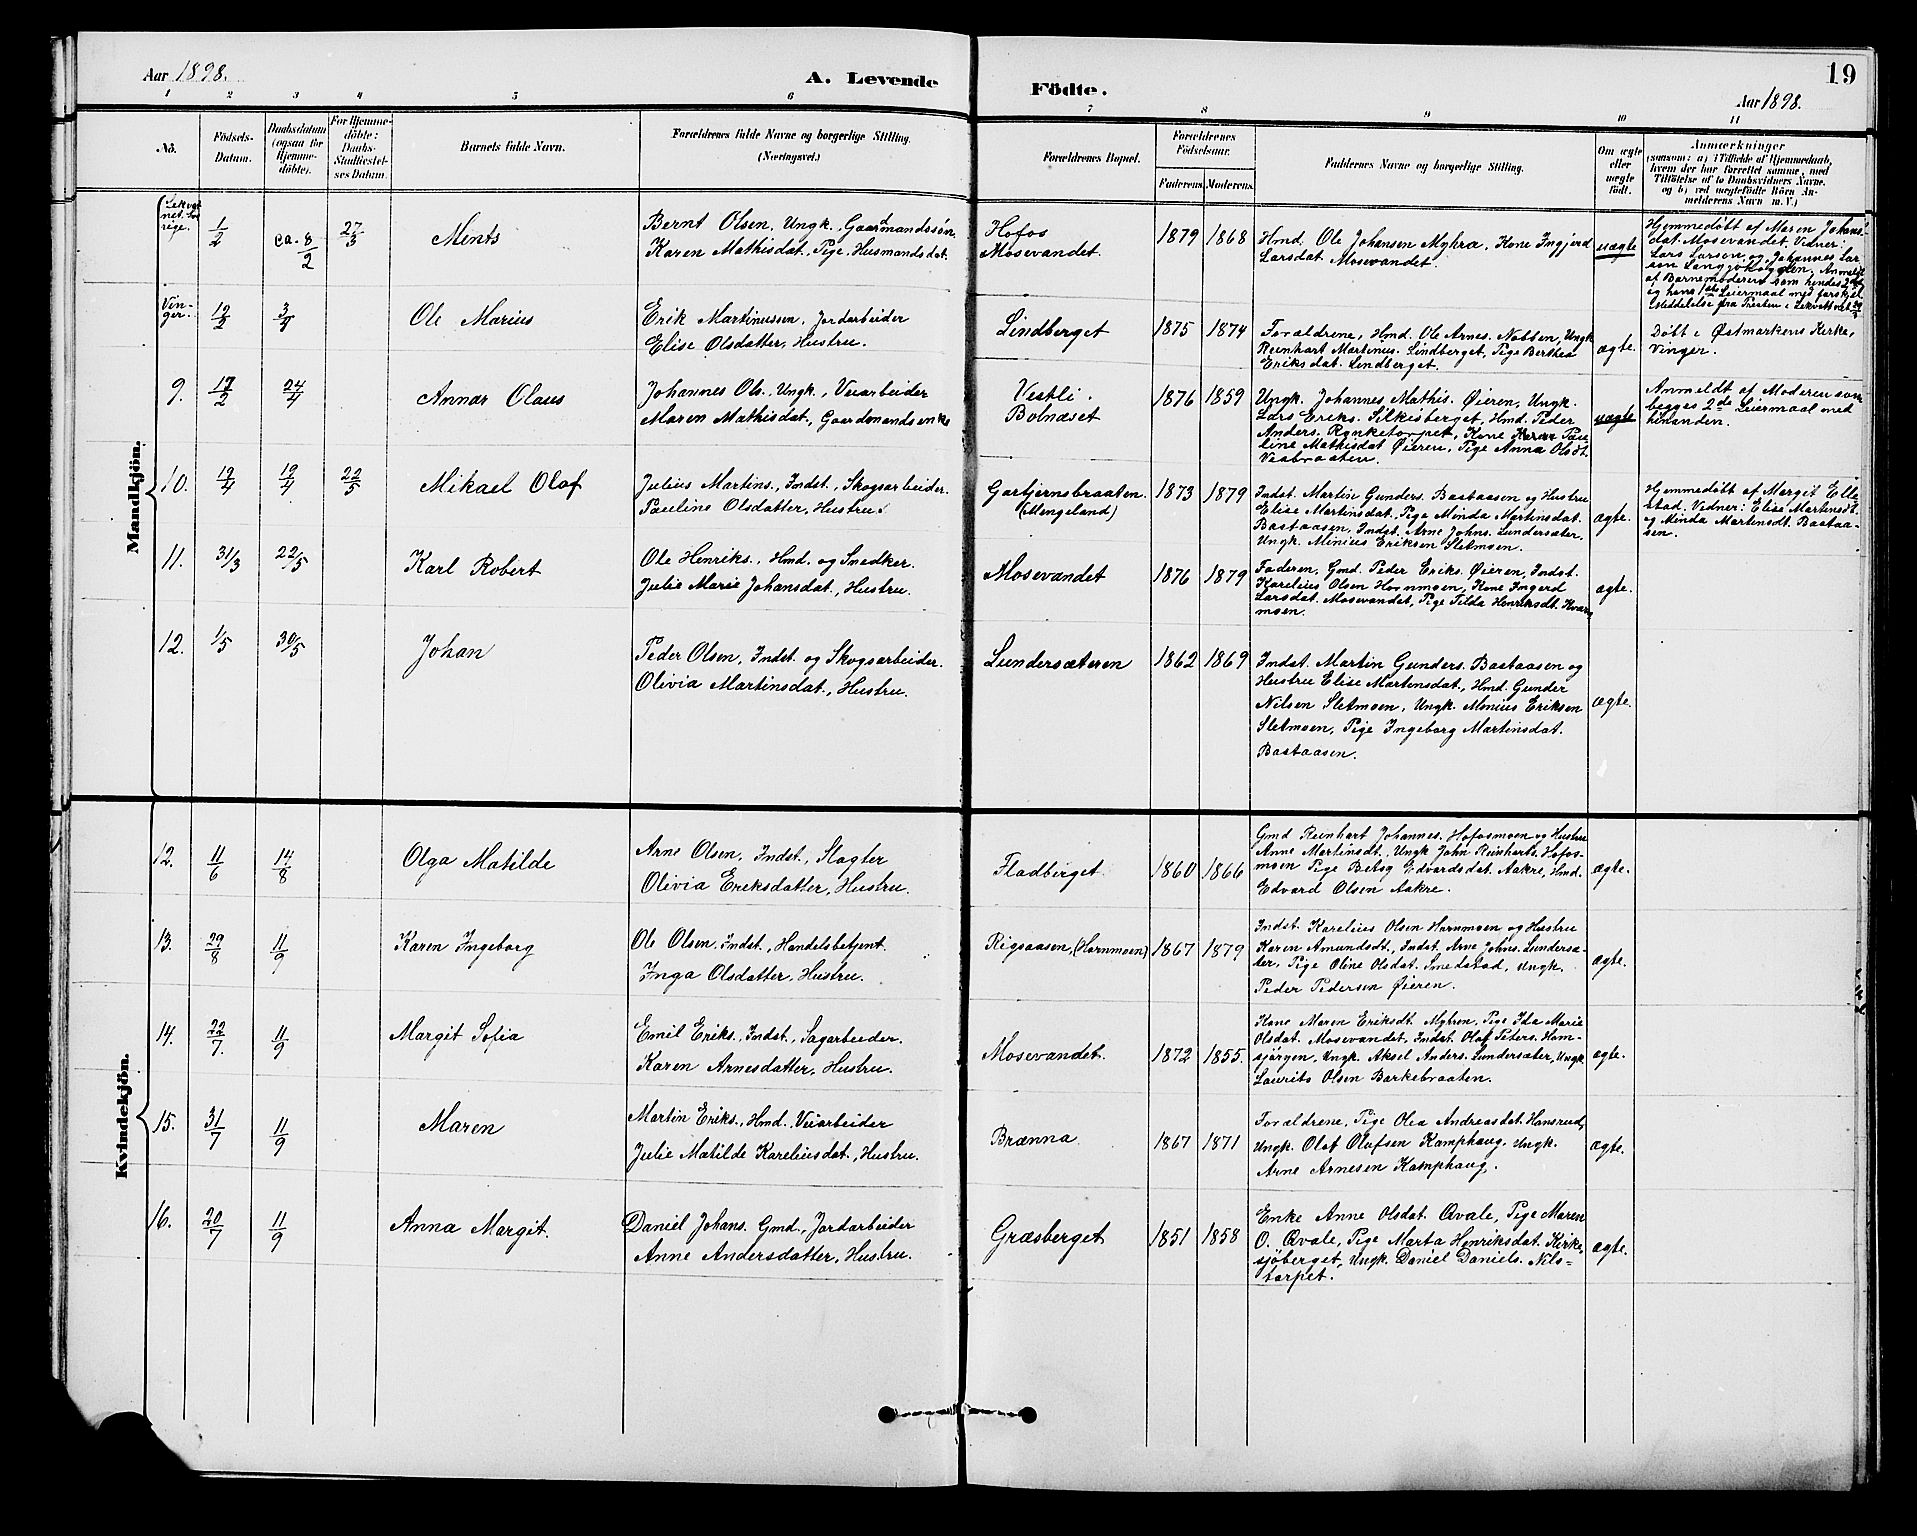 Aar 1898.
A. Levende
Födte.
19
Aar 1898.
1 2 3 4 5 6 7 8 9 10 11
No.
Födsels-
Datum.
Daabsdatum
(ogsaa for
Hjemme-
döbte).
For Hjemme-
döbte:
Daabs-
Stadfæstel-
ses Datum.
Barnets fulde Navn.
Forældrenes fulde Navne og borgerlige Stilling.
(Næringsvei.)
Forældrenes Bopæl.
Forældrenes
Födselsaar.
Faderens. Moderens.
Faddernes Navne og borgerlige Stilling.
Om ægte
eller
uægte
födt.
Anmærkninger
(saasom: a) i Tilfælde af Hjemmedaab,
hvem der har forrettet samme, med
Tilföielse af to Daabsvidners Navne,
og b) ved uægtefödte Börn An-
melderens Navn m. V.)
Mandkjön.
1/2
ca. 8/2
27/3
Ments
Bernt Olsen, Ungk. Gaardmandssön.
Karen Mathisdat. Pige, Husmandsdat.
Hofos
Mosevandet.
1879 1868
Hmd. Ole Johansen Myhra, Kone Ingjerd
Larsdat. Mosevandet.
uægte
Hjemmedøbt af Maren Johans-
dat. Mosevandet. Vidner:
Lars Larsen og Johannes Lar-
sen
af Barnemoderen som hendes 2det
og hans 1ste Leiermaal med forskel.
Meddelelse fra Presten i Lekvattnet
Vin-
ger.
12/2
3/4
Ole Marius
Erik Martinussen, Jordarbeider
Elise Olsdatter, Hustru.
Lindberget
1875 1874
Forældrene, Hmd. Ole Arnes. Nabben, Ungk
Reinhart Martinus. Lindberget, Pige Berthea
Eriksdat. Lindberget.
ægte.
Døbt i Østmarkens Kirke,
Vinger.
9.
17/2
24/4
Annar Olaus
Johannes Ols. Ungk., Veiarbeider
Maren Mathisdat., Gaardmandsenke
Vestli.
Bolnæset.
1876 1859
Ungk. Johannes Mathis. Øieren, Ungk.
Lars Eriks. Silkisberget, Hmd. Peder
Anders. Rynketorpet, Kone Karen Pau-
line Mathisdat Øieren, Pige Anna Olsdt.
Viabraaten.
uægte
Anmeldt af Moderen som
begges 2de Leiermaal med
hinanden.
10.
12/4
19/4
22/5
Mikael Olaf
Julius Martins., Indst., Skogsarbeider.
Pauline Olsdatter, Hustru.
Garbjernsbraaten.
(Mengeland)
1873 1879
Indst. Martin Gunders. Bastaasen og Hustru
Elise Martinsdat., Pige Minda Martinsdat.
Bastaasen, Indst. Arne Johns. Lundersæter,
Ungk. Minius Eriksen Sletmoen.
ægte.
Hjemmedøbt af Margit Elle-
stad. Vidner: Elise Martinsdt.
og Minda Martinsdt. Bastaa-
sen.
11.
31/3
22/5
Karl Robert
Ole Henriks., Hmd. og Snedker.
Julie Marie Johansdat., Hustru.
Mosevandet
1876 1879
Faderen, Gmd. Peder Eriks. Øieren, Indst.
Karelius Olsen Hornmoen, Kone Ingerd
Larsdat. Mosevandet, Pige Tilda Henriksdt. Kværn-
moen.
ægte.
12.
1/5
30/5
Johan
Peder Olsen, Indst. og Skogsarbeider.
Olivia Martinsdat., Hustru.
Lundersæteren
1862 1869
Indst. Martin Gunders. Bastaasen og
Hustru Elise Martinsdat., Hmd. Gunder
Nilsen Sletmoen, Ungk. Minius Eriksen
Sletmoen, Pige Ingeborg Martinsdat.
Bastaasen.
ægte.
Kvindekjön.
12.
11/6
14/8
Olga Matilde
Arne Olsen, Indst., Slagter
Olivia Eriksdatter, Hustru.
Fladberget
1860 1866
Gmd Reinhart Johannes. Hofosmoen og Hustru
Anne Martinsdt., Ungk John Reinharts. Hofos-
moen Pige Betsy Edvardsdat. Aakre, Hmd.
Edvard Olsen Aakre.
ægte.
13.
29/8
11/9
Karen Ingeborg
Ole Olsen, Indst., Handelsbetjent.
Inga Olsdatter, Hustru.
Rigsaasen, (Hornmoen)
1867 1879
Indst. Karelius Olsen Hornmoen og Hustru
Karen Amundsdt., Indst. Arne Johns. Lundersæ-
ter, Pige Oline Olsdat. Smedstad, Ungk.
Peder Pedersen Øieren.
ægte.
14.
22/7.
11/9
Margit Sofia
Emil Eriks., Indst., Sagarbeider.
Karen Arnesdatter, Hustru.
Mosevandet.
1872 1855.
Kone Maren Eriksdt. Myhren, Pige Ida Marie
Olsdat. Mosevandet, Indst. Olof Peders. Ham-
sjørgen, Ungk. Aksel Anders. Lundersæter, Ungk.
Laurits Olsen Barkebraaten.
ægte.
15.
31/7
11/9
Maren
Martin Eriks., Hmd. Veiarbeider
Julie Matilde Kareliusdat., Hustru.
Brænna.
1867 1871
Forældrene, Pige Olea Andreasdat. Hansrud,
Ungk. Olof Olufsen Kamphaug, Ungk.
Arne Arnesen Kamphaug.
ægte.
16.
20/7
11/9
Anna Margit.
Daniel Johans. Gmd., Jordarbeider
Anne Andersdatter, Hustru.
Græsberget
1851 1858
Enke Anne Olsdat. Qvale, Pige Maren
O. Qvale, Pige Marta Henriksdat. Kirke-
sjøberget, Ungk. Daniel Daniels. Nils-
torpet.
ægte.